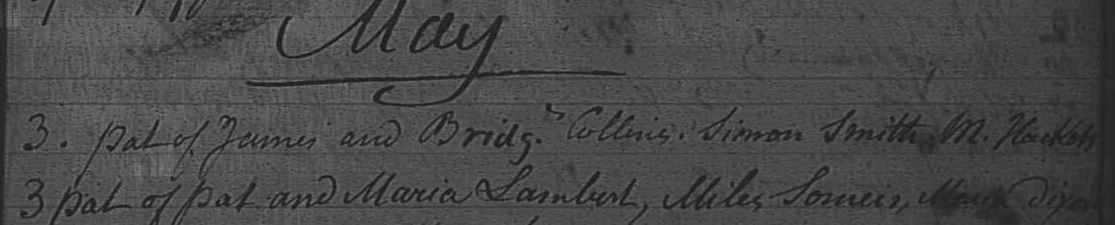 May
3. pat of James and Bridg.t Collins. Simon Smith M. Hackett
3 pat of pat and Maria Lambert, Miles Somers, Dixon